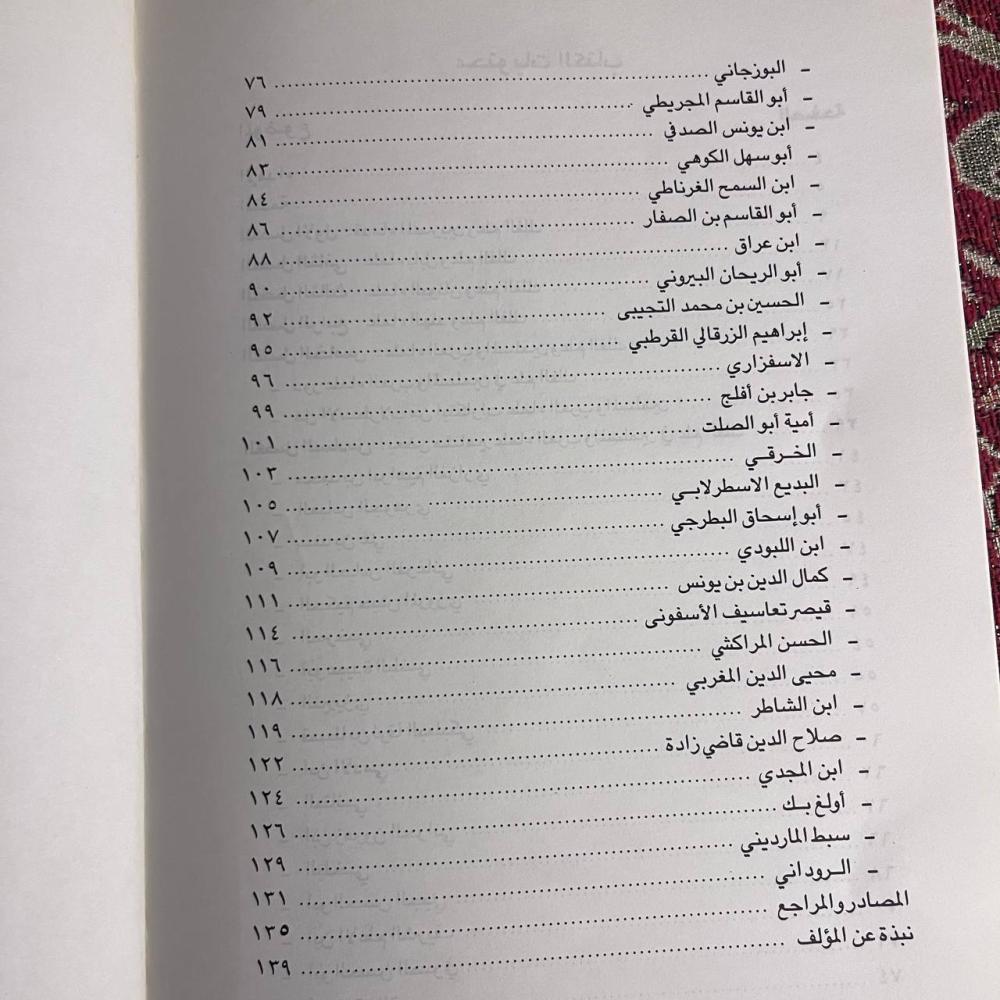 – البوزجاني ........ ٧٦
– أبو القاسم المجريطي ........ ٧٩
– ابن يونس الصدفي ........ ٨١
– أبو سهل الكوهي ........ ٨٣
– ابن السمح الغرناطي ........ ٨٤
– أبو القاسم بن الصفار ........ ٨٦
– ابن عراق ........ ٨٨
– أبو الريحان البيروني ........ ٩٠
– الحسين بن محمد التجيبى ........ ٩٢
– إبراهيم الزرقالي القرطبي ........ ٩٥
– الاسفزاري ........ ٩٦
– جابر بن أفلج ........ ٩٩
– أمية أبو الصلت ........ ١٠١
– الخـرقـي ........ ١٠٣
– البديع الاسطرلابـي ........ ١٠٥
– أبو إسحاق البطرجي ........ ١٠٧
– ابن اللبودي ........ ١٠٩
– كمال الدين بن يونس ........ ١١١
– قيصر تعاسيف الأسفونى ........ ١١٤
– الحسن المراكشي ........ ١١٦
– محيى الدين المغربي ........ ١١٨
– ابن الشاطر ........ ١١٩
– صلاح الدين قاضي زادة ........ ١٢٢
– ابن المجدي ........ ١٢٤
– أولغ بـك ........ ١٢٦
– سبط المارديني ........ ١٢٩
– الـروداني ........ ١٣١
المصادر والمراجع ........ ١٣٥
نبذة عن المؤلف ........ ١٣٩